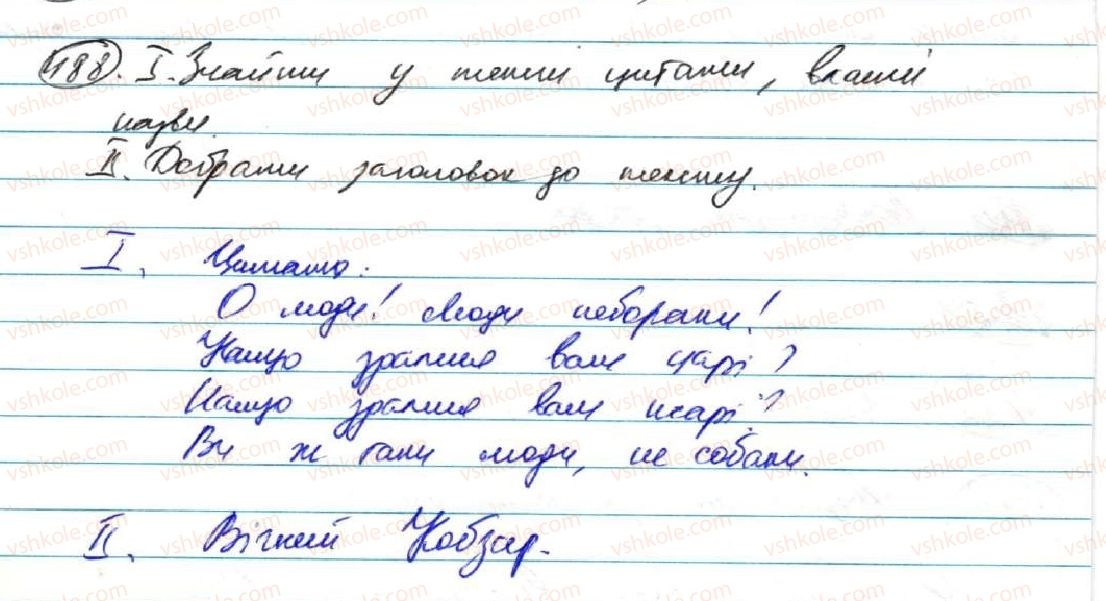 488. I. Знайти у тексті цитати, власні
назви.
II. Добрати заголовок до тексту.
I. Цитата:
О люди! люди небораки!
Нащо здалися вам царі?
Нащо здалися вам псарі?
Ви ж таки люди, не собаки.
II. Вічний Кобзар.